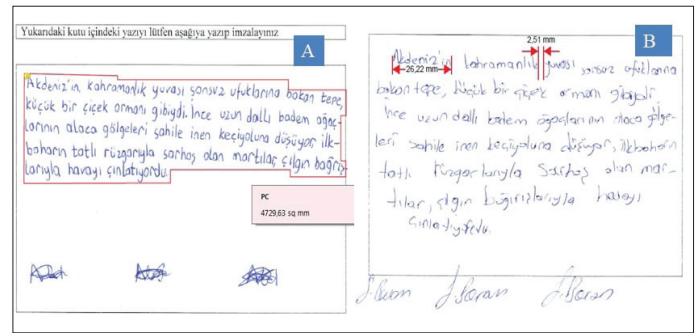 Yukarıdaki kutu içindeki yazıyı lütfen aşağıya yazıp imzalayınız
A
Akdeniz'in kahramanlık yuvası sonsuz ufuklarına bakan tepe,
küçük bir çiçek ormanı gibiydi. İnce uzun dallı badem ağaç-
larının alaca gölgeleri sahile inen keçiyoluna düşüyor, ilk-
baharın tatlı rüzgarıyla sarhoş olan martılar, çılgın bağrış-
larıyla havayı çınlatıyordu.
PC
4729,63 sq mm
B
2,51 mm
Akdeniz'in kahramanlık yuvası sonsuz ufuklarına
26,22 mm
bakan tepe, küçük bir çiçek ormanı gibiydi
İnce uzun dallı badem ağaçlarının alaca gölge-
leri sahile inen keçiyoluna düşüyor, ilkbaharın
tatlı rüzgarlarıyla sarhoş olan mar-
tılar, çılgın bağırışlarıyla havayı
çınlatıyordu.
J. Baran J. Baran